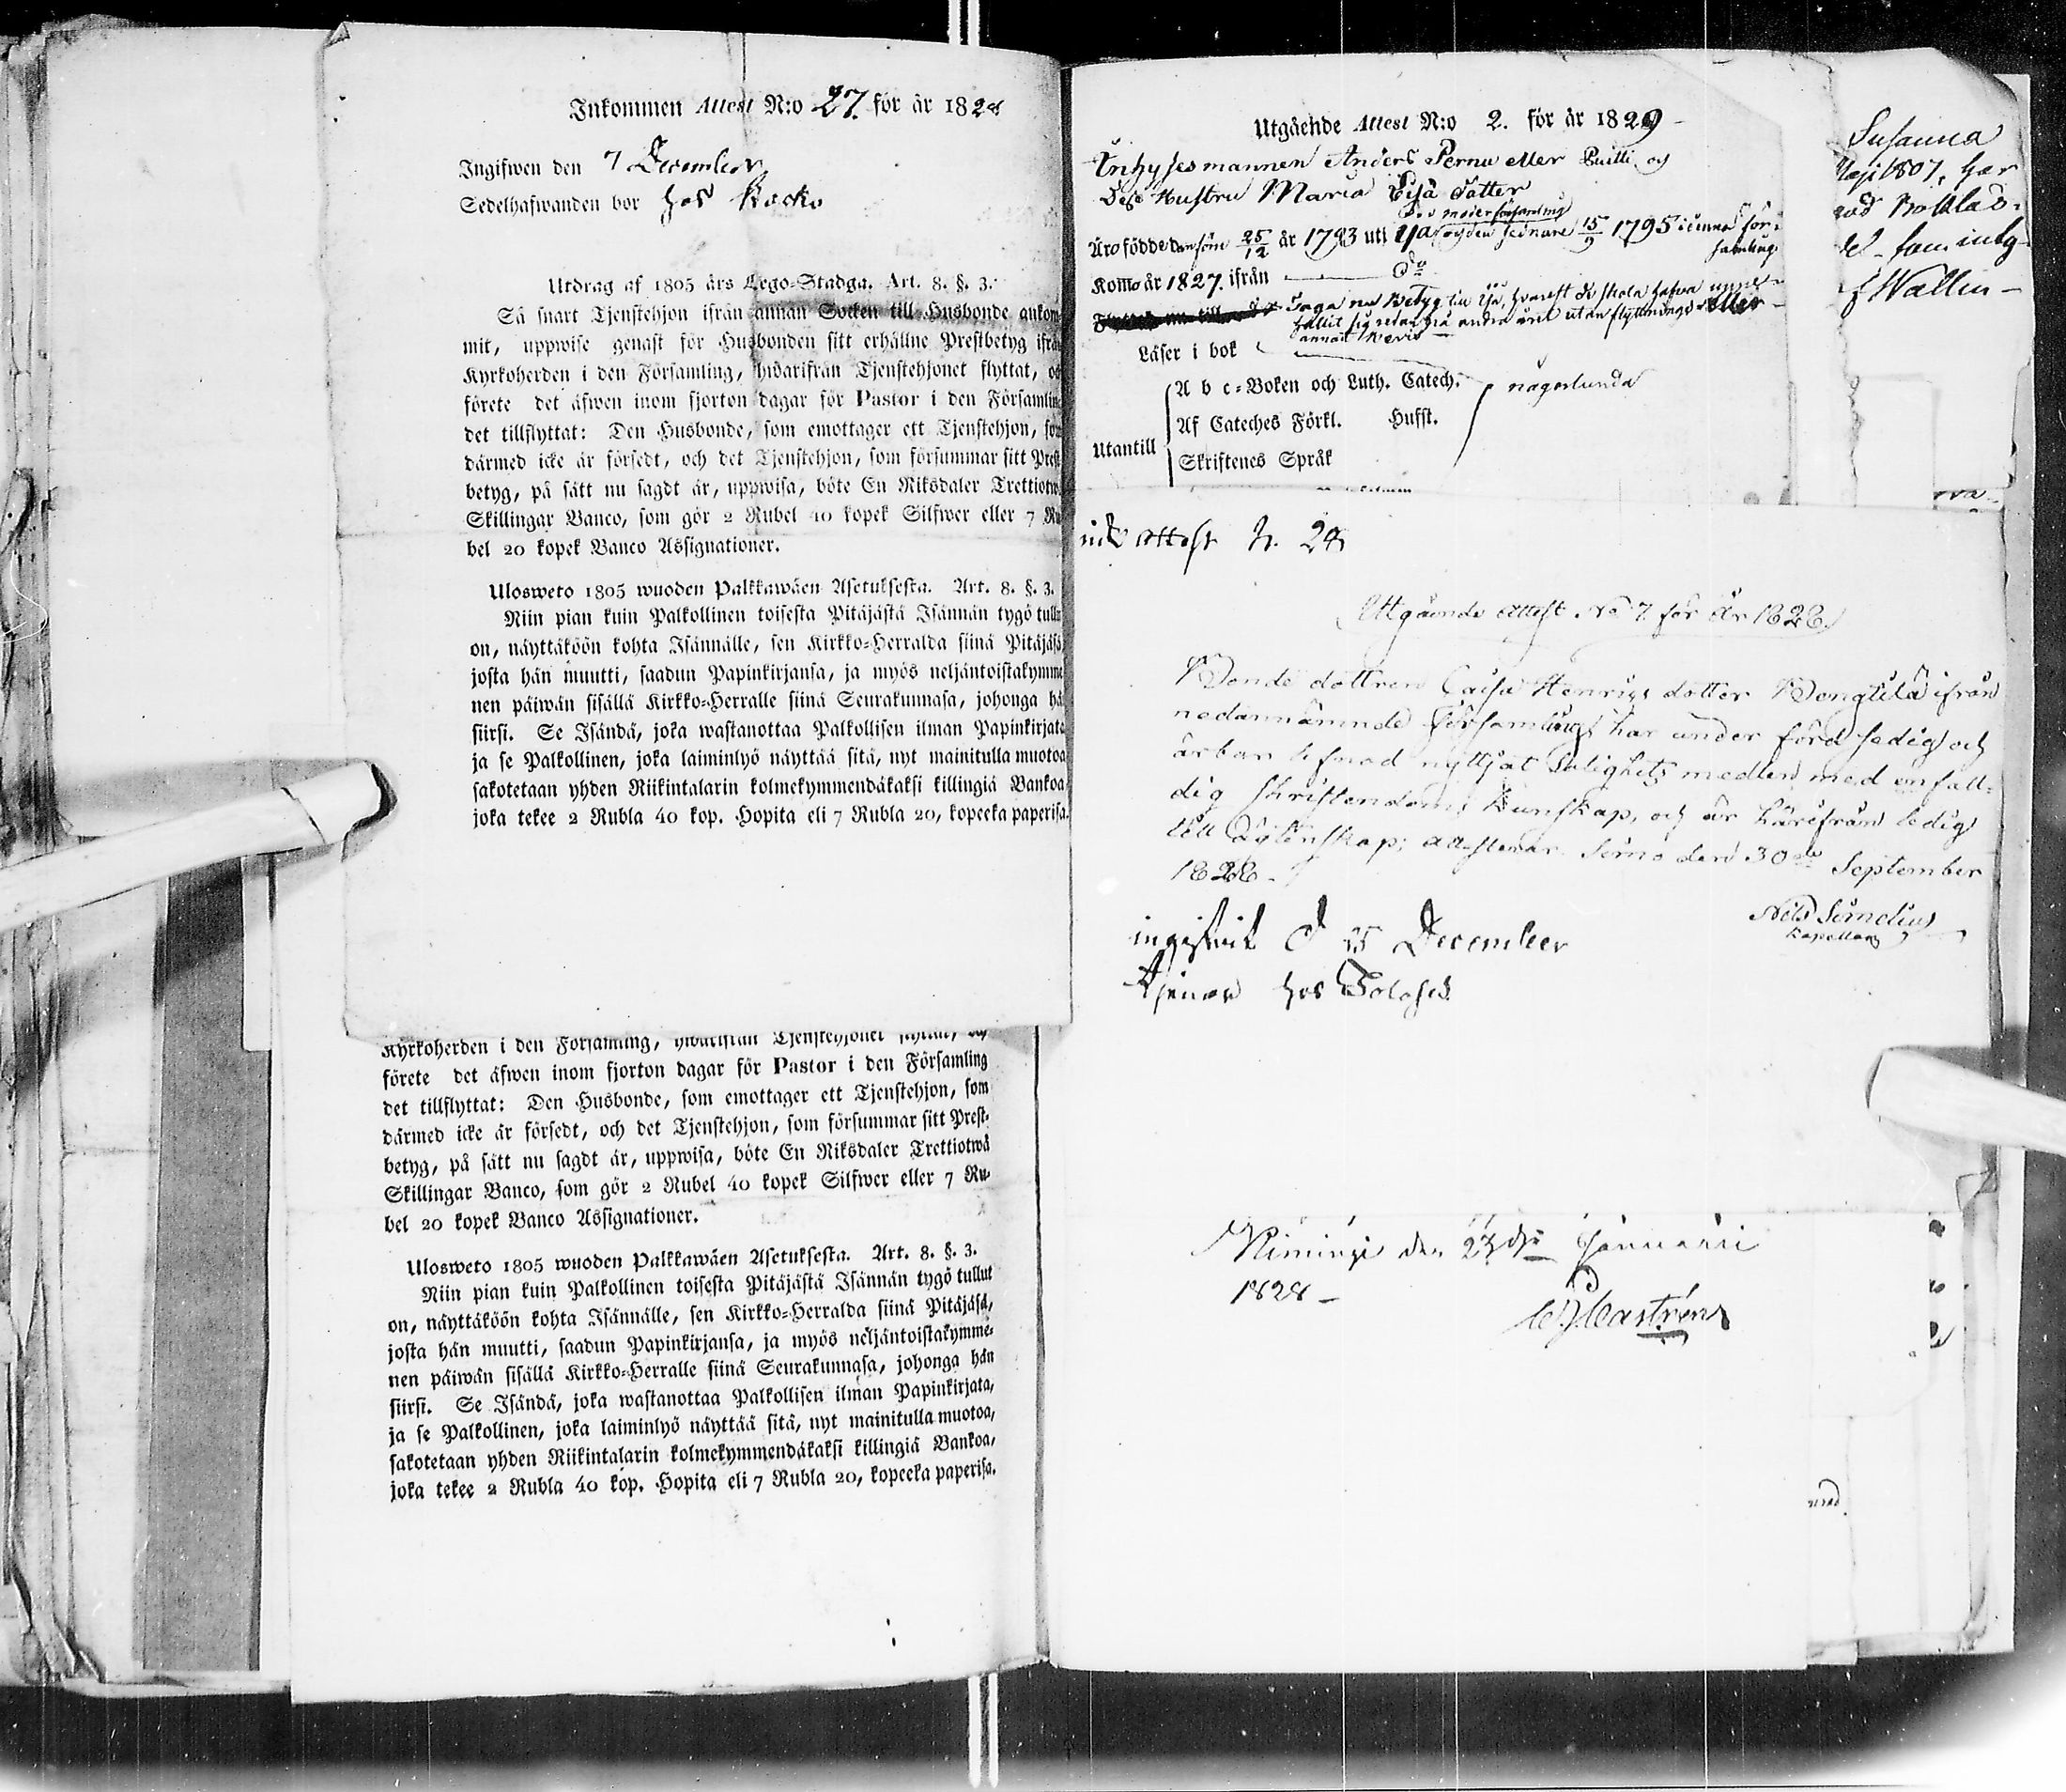 Inkommen Attest N:o 27. för år 1828
Ingifwen den 7 December
Sedelhafwanden bor hos Kosko
Utdrag af 1805 års Lego-Stadga. Art. 8. §. 3.
Så snart Tjenstehjon ifrån annan Socken till Husbonde ankom
mit, uppwise genast för Husbonden sitt erhållne Prestbetyg ifrå
Kyrkoherden i den Församling, hwarifrån Tjenstehjonet flyttat, oc
förete det äfwen inom fjorton dagar för Pastor i den Församling
det tillflyttat: Den Husbonde, som emottager ett Tjenstehjon, som
därmed icke är försedt, och det Tjenstehjon, som försummar sitt Prest
betyg, på sätt nu sagdt är, uppwisa, böte En Riksdaler Trettiotw
Skillingar Banco, som gör 2 Rubel 40 kopek Silfwer eller 7 Ru
bel 20 kopek Banco Assignationer.
Ulosweto 1805 wuoden Palkkawäen Asetuksesta. Art. 8. §. 3.
Niin pian kuin Palkollinen toisesta Pitäjästä Isännän tygö tullu
on, näyttäköön kohta Isännälle, sen Kirkko-Herralda siinä Pitäjäsä
josta hän muutti, saadun Papinkirjansa, ja myös neljäntoistakymme
nen päiwän sisällä Kirkko-Herralle siinä Seurakunnasa, johonga hä
siirsi. Se Isändä, joka wastanottaa Palkollisen ilman Papinkirjata
ja se Palkollinen, joka laiminlyö näyttää sitä, nyt mainitulla muotoa
sakotetaan yhden Riikintalarin kolmekymmendäkaksi killingiä Bankoa,
joka tekee 2 Rubla 40 kop. Hopita eli 7 Rubla 20, kopeeka paperisa.
Kyrkoherden i den Församling, hwarifrån Tjenstehjonet flyttat, och
förete det äfwen inom fjorton dagar för Pastor i den Församling
det tillflyttat: Den Husbonde, som emottager ett Tjenstehjon, som
därmed icke är försedt, och det Tjenstehjon, som försummar sitt Prest-
betyg, på sätt nu sagdt är, uppwisa, böte En Riksdaler Trettiotwå
Skillingar Banco, som gör 2 Rubel 40 kopek Silfwer eller 7 Ru-
bel 20 kopek Banco Assignationer.
Ulosweto 1805 wuoden Palkkawäen Asetuksesta. Art. 8. §. 3.
Niin pian kuin Palkollinen toisesta Pitäjästä Isännän tygö tullut
on, näyttäköön kohta Isännälle, sen Kirkko-Herralda siinä Pitäjäsä,
josta hän muutti, saadun Papinkirjansa, ja myös neljäntoistakymme-
nen päiwän sisällä Kirkko-Herralle siinä Seurakunnasa, johonga hän
siirsi. Se Isändä, joka wastanottaa Palkollisen ilman Papinkirjata,
ja se Palkollinen, joka laiminlyö näyttää sitä, nyt mainitulla muotoa,
sakotetaan yhden Riikintalarin kolmekymmendäkaksi killingiä Bankoa,
joka tekee 2 Rubla 40 kop. Hopita eli 7 Rubla 20, kopeeka paperisa.
Utgående Attest N:o 2. för år 1829
Inhysesmannen Anders Pernu eller Puilli og
Dess Hustru Maria Eisä dotter
moderförsamling
Äro födde den förre 25/12 år 1793 uti Ija og den sednare 15/9 1795 i denna för-
samling
Kommo år 1827. ifrån do
Taga nu Betyg till Ijå, hvarest de skola hafva uppe-
hållit sig redan på andra året utan flyttnings eller
annat Bevis
Läser i bok
Utantill
A b c-Boken och Luth. Catech. någorlunda
Af Cateches Förkl. Hufst.
Skriftenes Språk
Susanna
1807, har
Wallin
ink attest N. 28
Utgående attest No 7 för år 1828.
Bonde dottren Caisa Henrics dotter Bengtilä ifrån
nedannämnde församling har under förd sedig och
ärbar lefnad nyttjat Salighets medlen med enfall-
dig Christendoms kunskap, och är härifrån ledig
till Ägtenskap; attesterar. Simo den 30de September
1828.
Nils Simelius
Kapellan
ingifvit d 25 December
tjenar hos
Kiminge den 27de Januarii
1828
Castrén